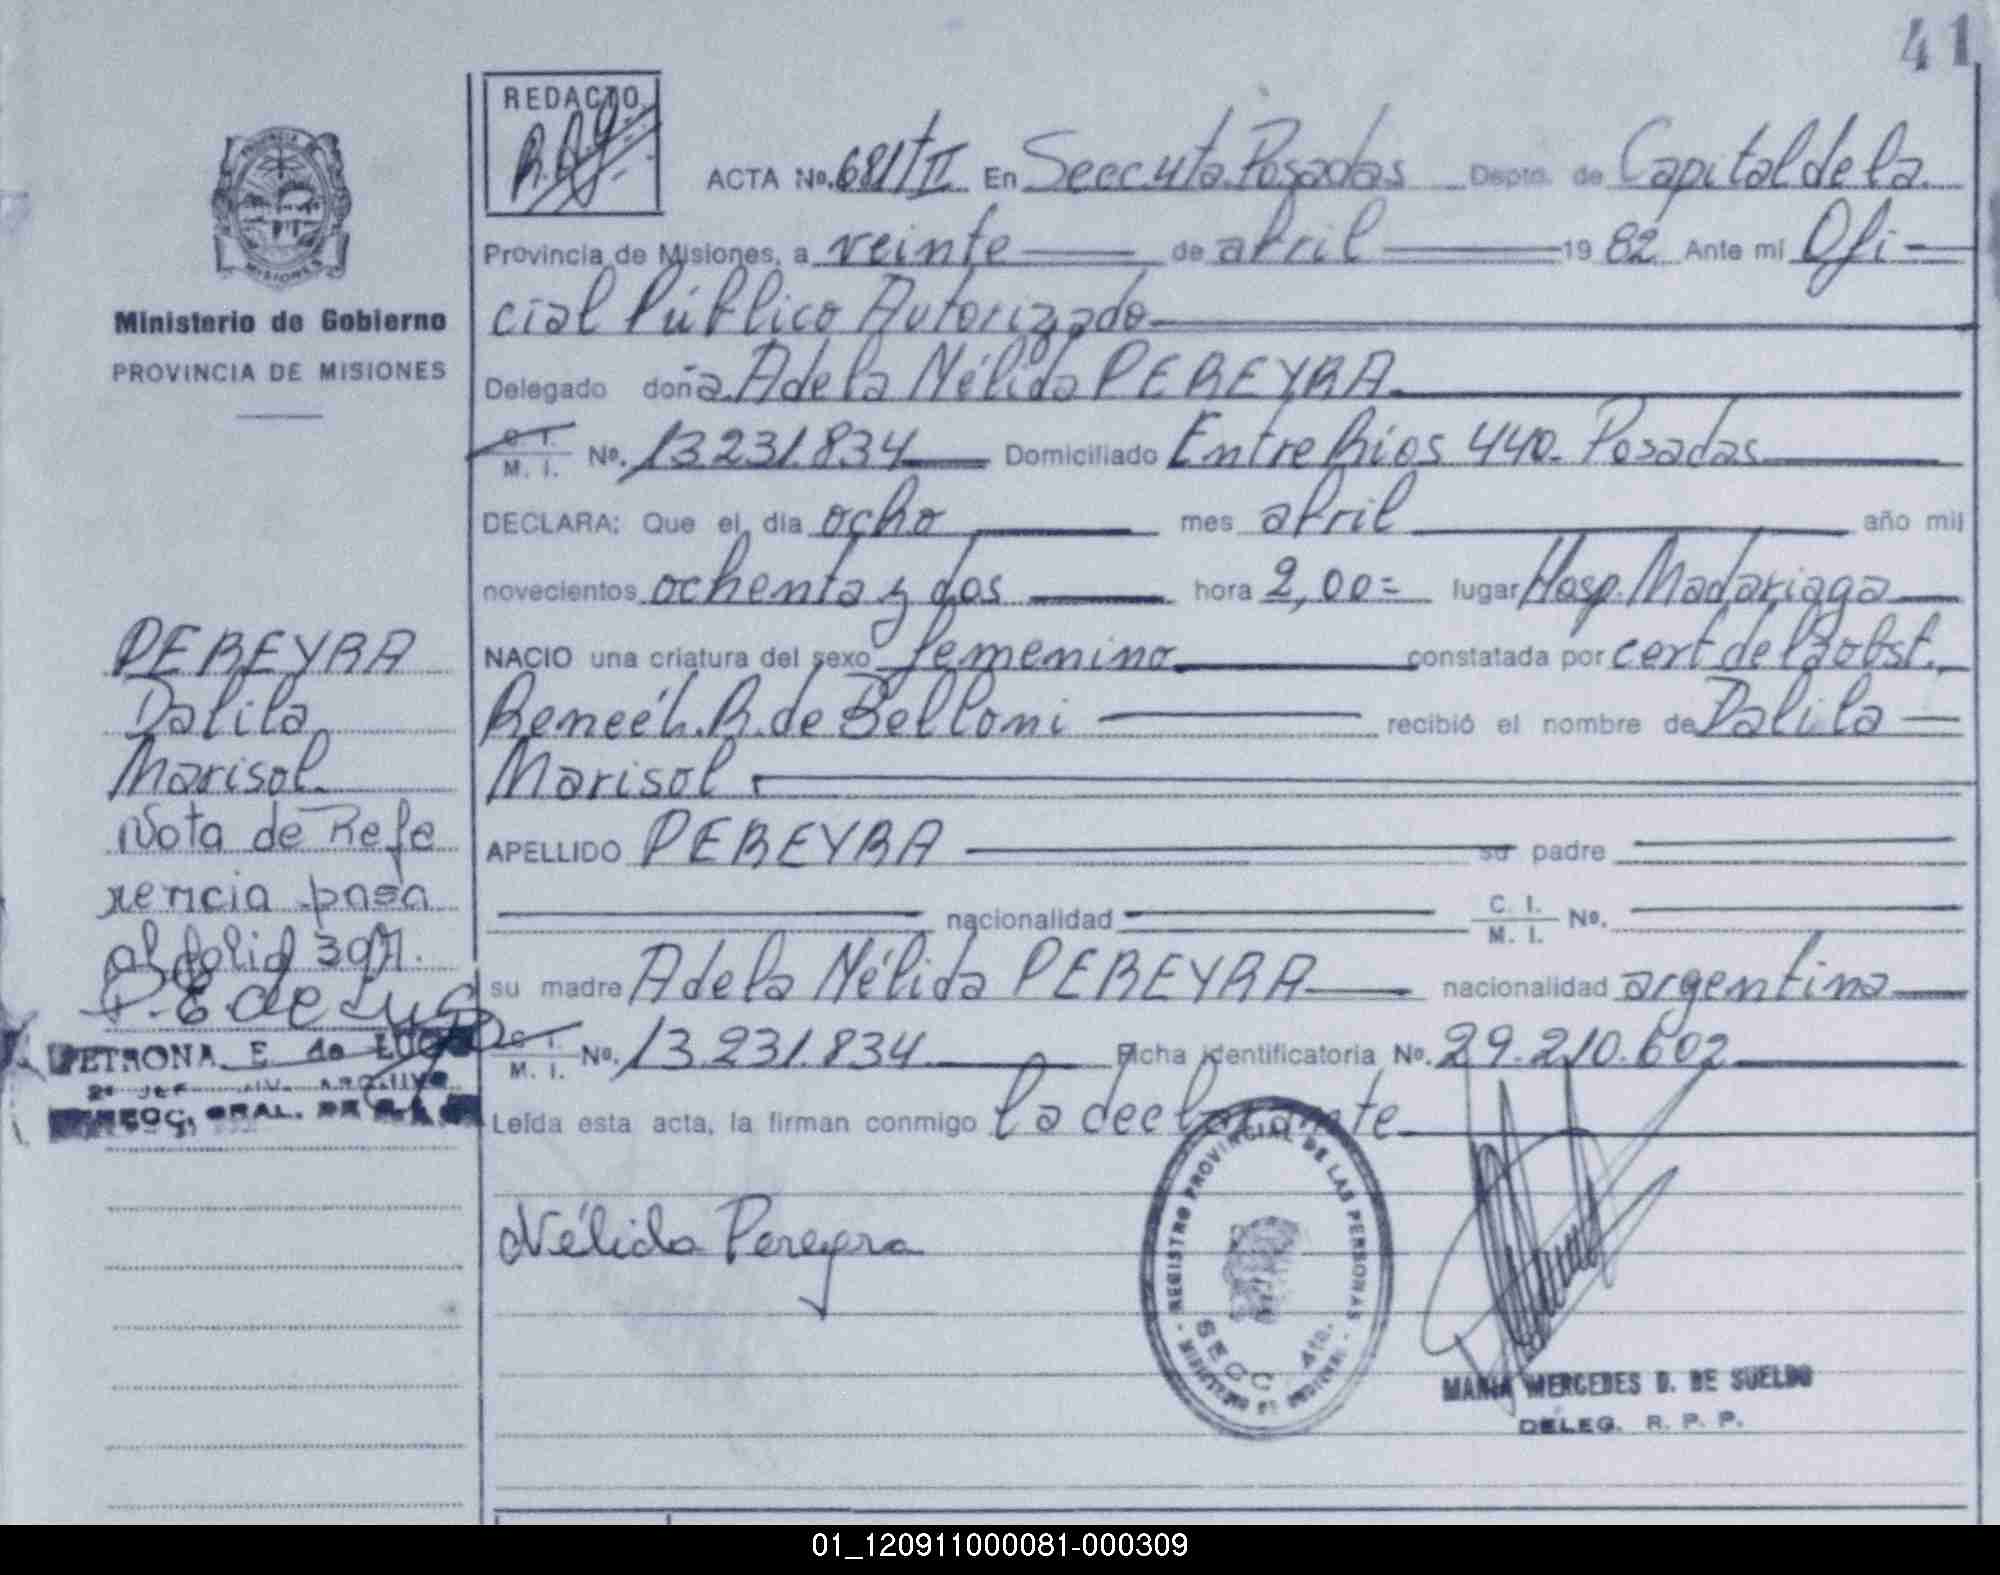 41
REDACTO
ACTA No. 681/II En Secc 4ta. Posadas Depto. de Capital de la
Provincia de Misiones, a veinte de abril 19 82 Ante mi Ofi-
cial Público Autorizado
Delegado doña Adela Nélida PEREYRA
C. I.
M. I. No. 13.231.834 Domiciliado Entre Rios 440. Posadas
DECLARA: Que el día ocho mes abril año mil
novecientos ochenta y dos hora 2,00= lugar Hosp. Madariaga
NACIO una criatura del sexo femenino constatada por cert. de la obst.
Reneé L. R. de Belloni recibió el nombre de Dalila
Marisol
APELLIDO PEREYRA su padre
nacionalidad C. I.
M. I. No.
su madre Adela Nélida PEREYRA nacionalidad argentina
C. I.
M. I. No. 13.231.834 Ficha identificatoria No. 29.210.602
Leída esta acta, la firman conmigo la declarante
Nélida Pereyra
REGISTRO PROVINCIAL DE LAS PERSONAS
SECC 4ta.
MARIA MERCEDES D. DE SUELDO
DELEG. R. P. P.
PROVINCIA
MISIONES
Ministerio de Gobierno
PROVINCIA DE MISIONES
PEREYRA
Dalila
Marisol
Nota de Refe
rencia pasa
al folio 397.
P. E de Lugo
PETRONA E. de LUGO
GRAL. DE
01_120911000081-000309